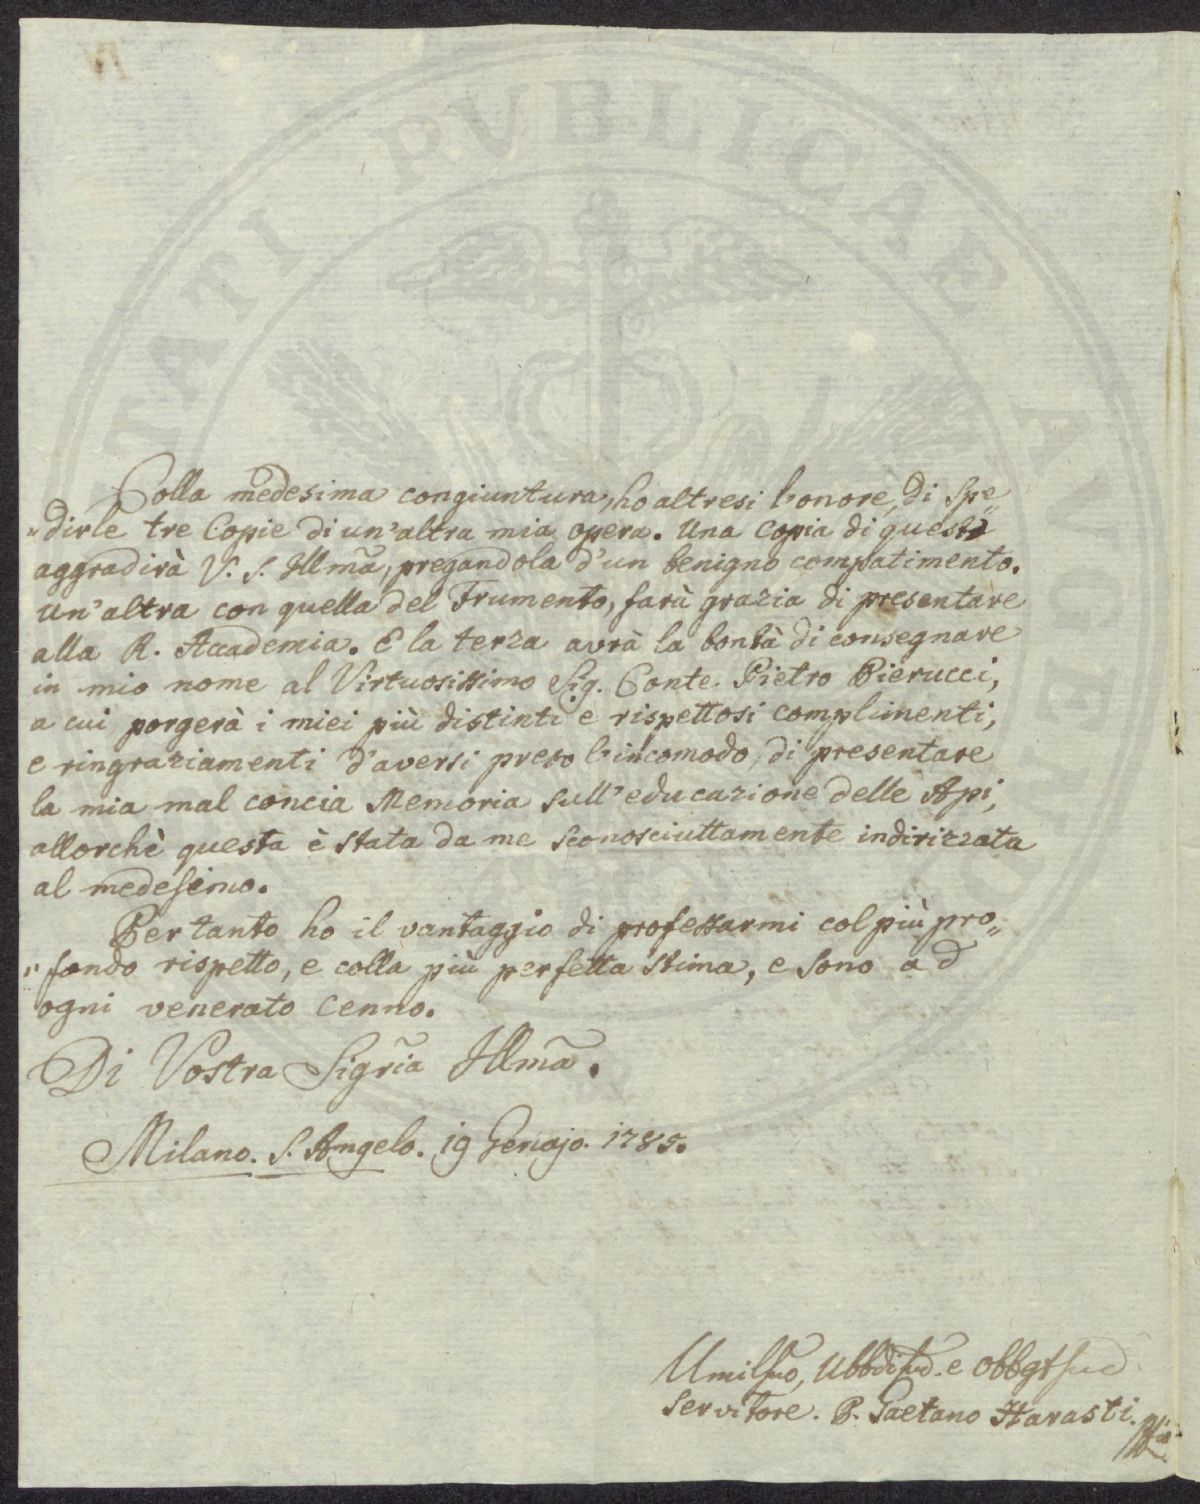 Colla medesima congiuntura, ho altresi l'onore, di Spe„
„dirle tre Copie di un'altra mia opera. Una Copia di queste
aggradirà V. S. Illmã, pregandola d'un benigno compatimento.
Un'altra con quella del Frumento, farà grazia di presentare
alla R. Accademia. E la terza avrà la bontà di consegnare
in mio nome al Virtuosissimo Sig. Conte Pietro Pierucci,
a cui porgerà i miei più distinti e rispettosi complimenti,
e ringraziamenti d'aversi preso l'incomodo, di presentare
la mia mal concia Memoria sull'educazione delle Api,
allorchè questa è stata da me sconosciuttamente indirizzata
al medesimo.
Per tanto ho il vantaggio di professarmi col più pro„
„fondo rispetto, e colla più perfetta stima, e sono ad
ogni venerato cenno.
Di Vostra Sigrĩa Illmã.
Milano. S. Angelo. 19 Genajo. 1785.
Umilsmo, Ubbdismo. e Obbgtsmo
Servitore. P. Gaetano Harasti.
UTILITATI PVBLICAE AVGENDAE